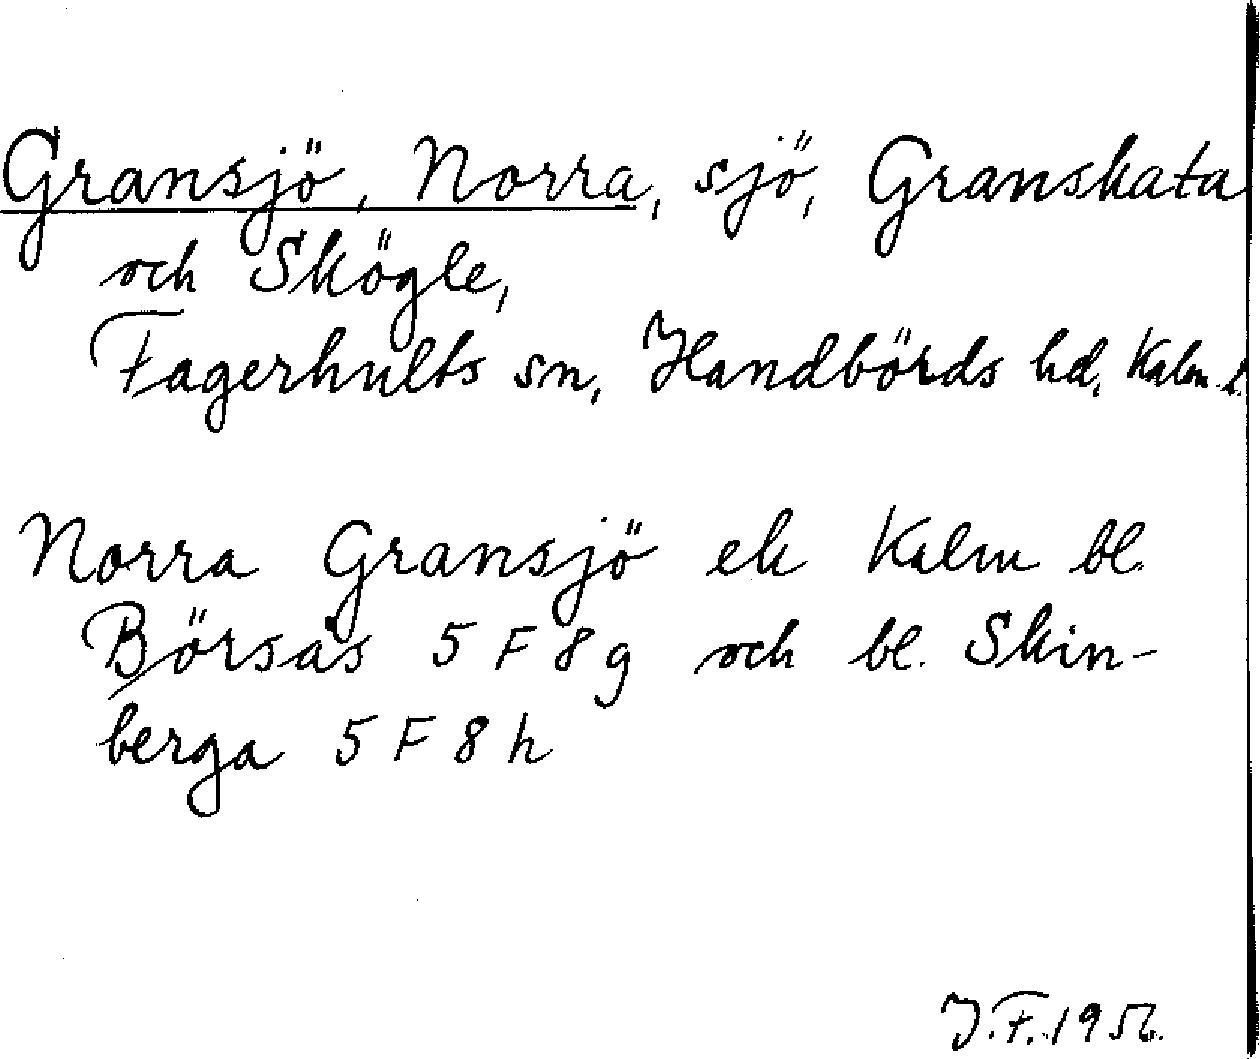 Gransjö, Norra, sjö, Granskata
och Skögle,
Fagerhults sn, Handbörds hd, Kalm. l.
Norra Gransjö ek Kalm bl.
Börsås 5 F 8 g och bl. Skin-
berga 5 F 8 h
J.F. 1956.